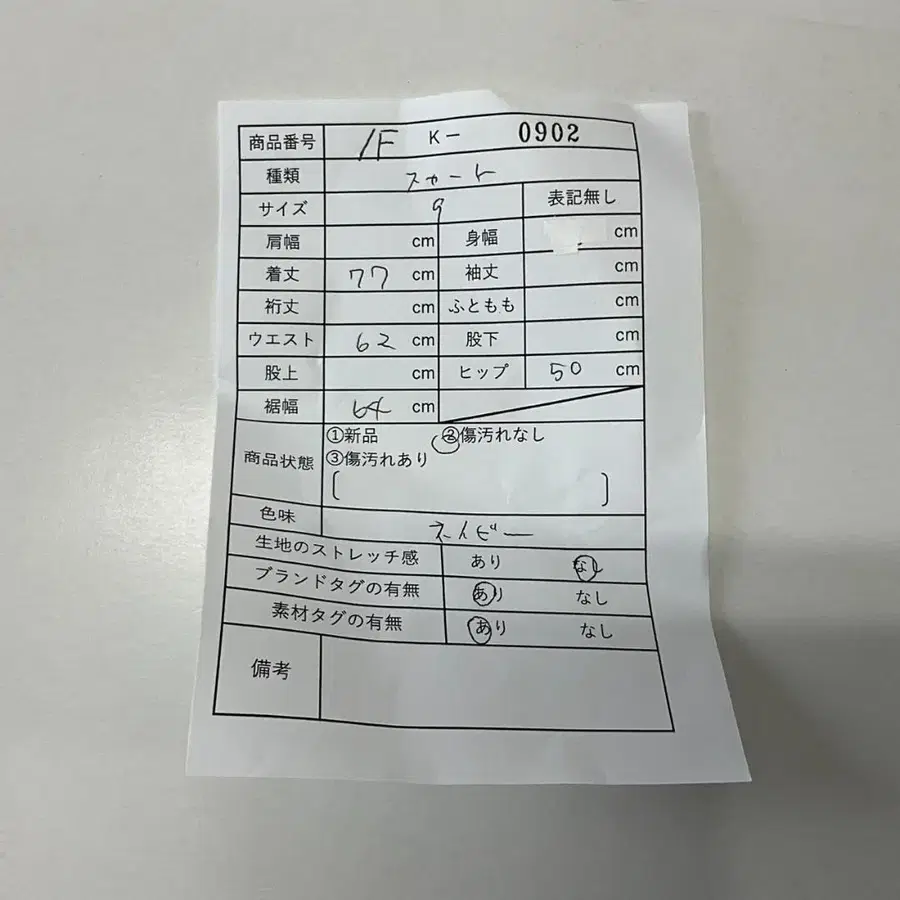 商品番号 1F K－ 0902
種類 スカート
サイズ 9 表記無し
肩幅 cm 身幅 cm
着丈 77 cm 袖丈 cm
裄丈 cm ふともも cm
ウエスト 62 cm 股下 cm
股上 cm ヒップ 50 cm
裾幅 64 cm
商品状態 ①新品 ②傷汚れなし
③傷汚れあり
[ ]
色味 ネイビー
生地のストレッチ感 あり なし
ブランドタグの有無 あり なし
素材タグの有無 あり なし
備考